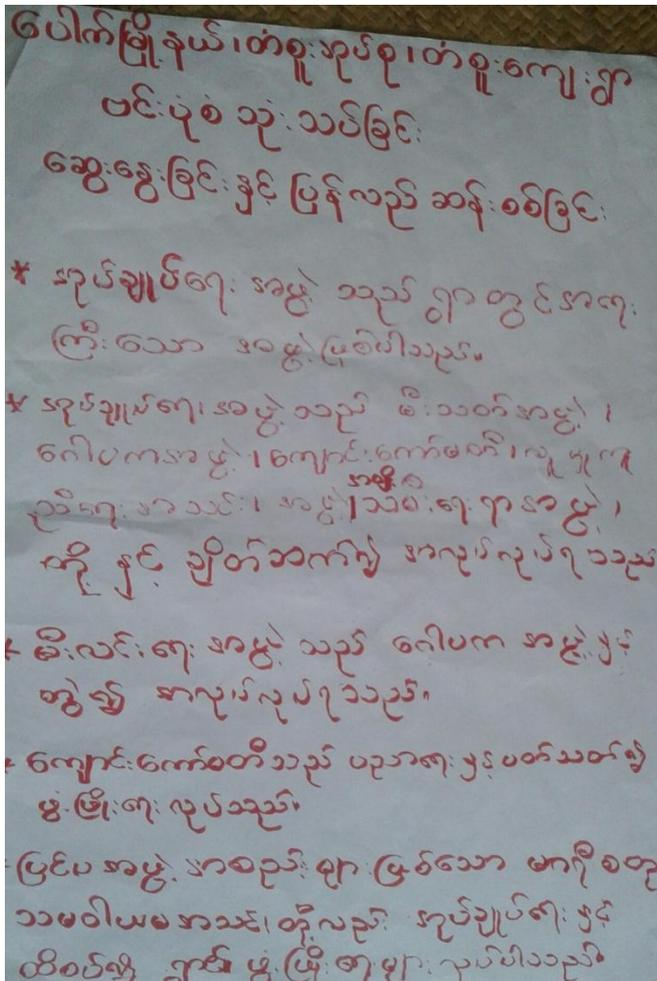 ပေါက်မြို့နယ်၊တံစူးအုပ်စု၊တံစူးကျေးရွာ
ဗင်းပုံစံ သုံးသပ်ခြင်း
ဆွေးနွေးခြင်းနှင့် ပြန်လည်ဆန်းစစ်ခြင်း
* အုပ်ချုပ်ရေး အဖွဲ့ သည် ရွာတွင်အရေး
ကြီးသော အဖွဲ့ဖြစ်ပါသည်။
* အုပ်ချုပ်ရေးအဖွဲ့သည် မီးသတ်အဖွဲ့၊
ဂေါပကအဖွဲ့၊ကျောင်းကော်မတီ၊လူမှုကူ
ညီရေးအသင်း၊ အဖွဲ့၊သမီးရေးရာအဖွဲ့၊
အမျိုး
တို့နှင့် ချိတ်ဆက်၍ အလုပ်လုပ်ရသည်
* မီးလင်းရေးအဖွဲ့သည် ဂေါပက အဖွဲ့နှင့်
တွဲ၍ အလုပ်လုပ်ရသည်။
* ကျောင်းကော်မတီသည် ပညာရေးနှင့်ပတ်သတ်၍
ဖွံ့ဖြိုးရေးလုပ်သည်။
ပြင်ပအဖွဲ့အစည်းများဖြစ်သော မာရီစတု
သမဝါယမအသင်း၊တို့လည်း အုပ်ချုပ်ရေးနှင့်
ထိစပ်၍ ဖွံ့ဖြိုးရေးများလုပ်ပါသည်။